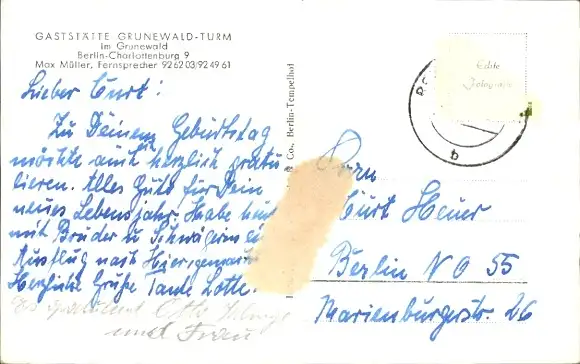 GASTSTÄTTE GRUNEWALD-TURM
im Grunewald
Berlin-Charlottenburg 9
Max Müller, Fernsprecher 92 62 03/92 49 61
Lieber Curt!
Zu Deinem Geburtstag
möchte auch herzlich gratu
lieren. Alles Gute für Dein
neues Lebensjahr. Habe heut
mit Bruder u Schwägerin ei
Ausflug nach Hier, gemacht
Herzliche Grüße Tante Lotte.
Es gratuliert Otto
und Frau
& Co., Berlin-Tempelhof
Echte
Fotografie
b
Herrn
Curt Heuer
Berlin N O 55
Marienburgerstr. 26